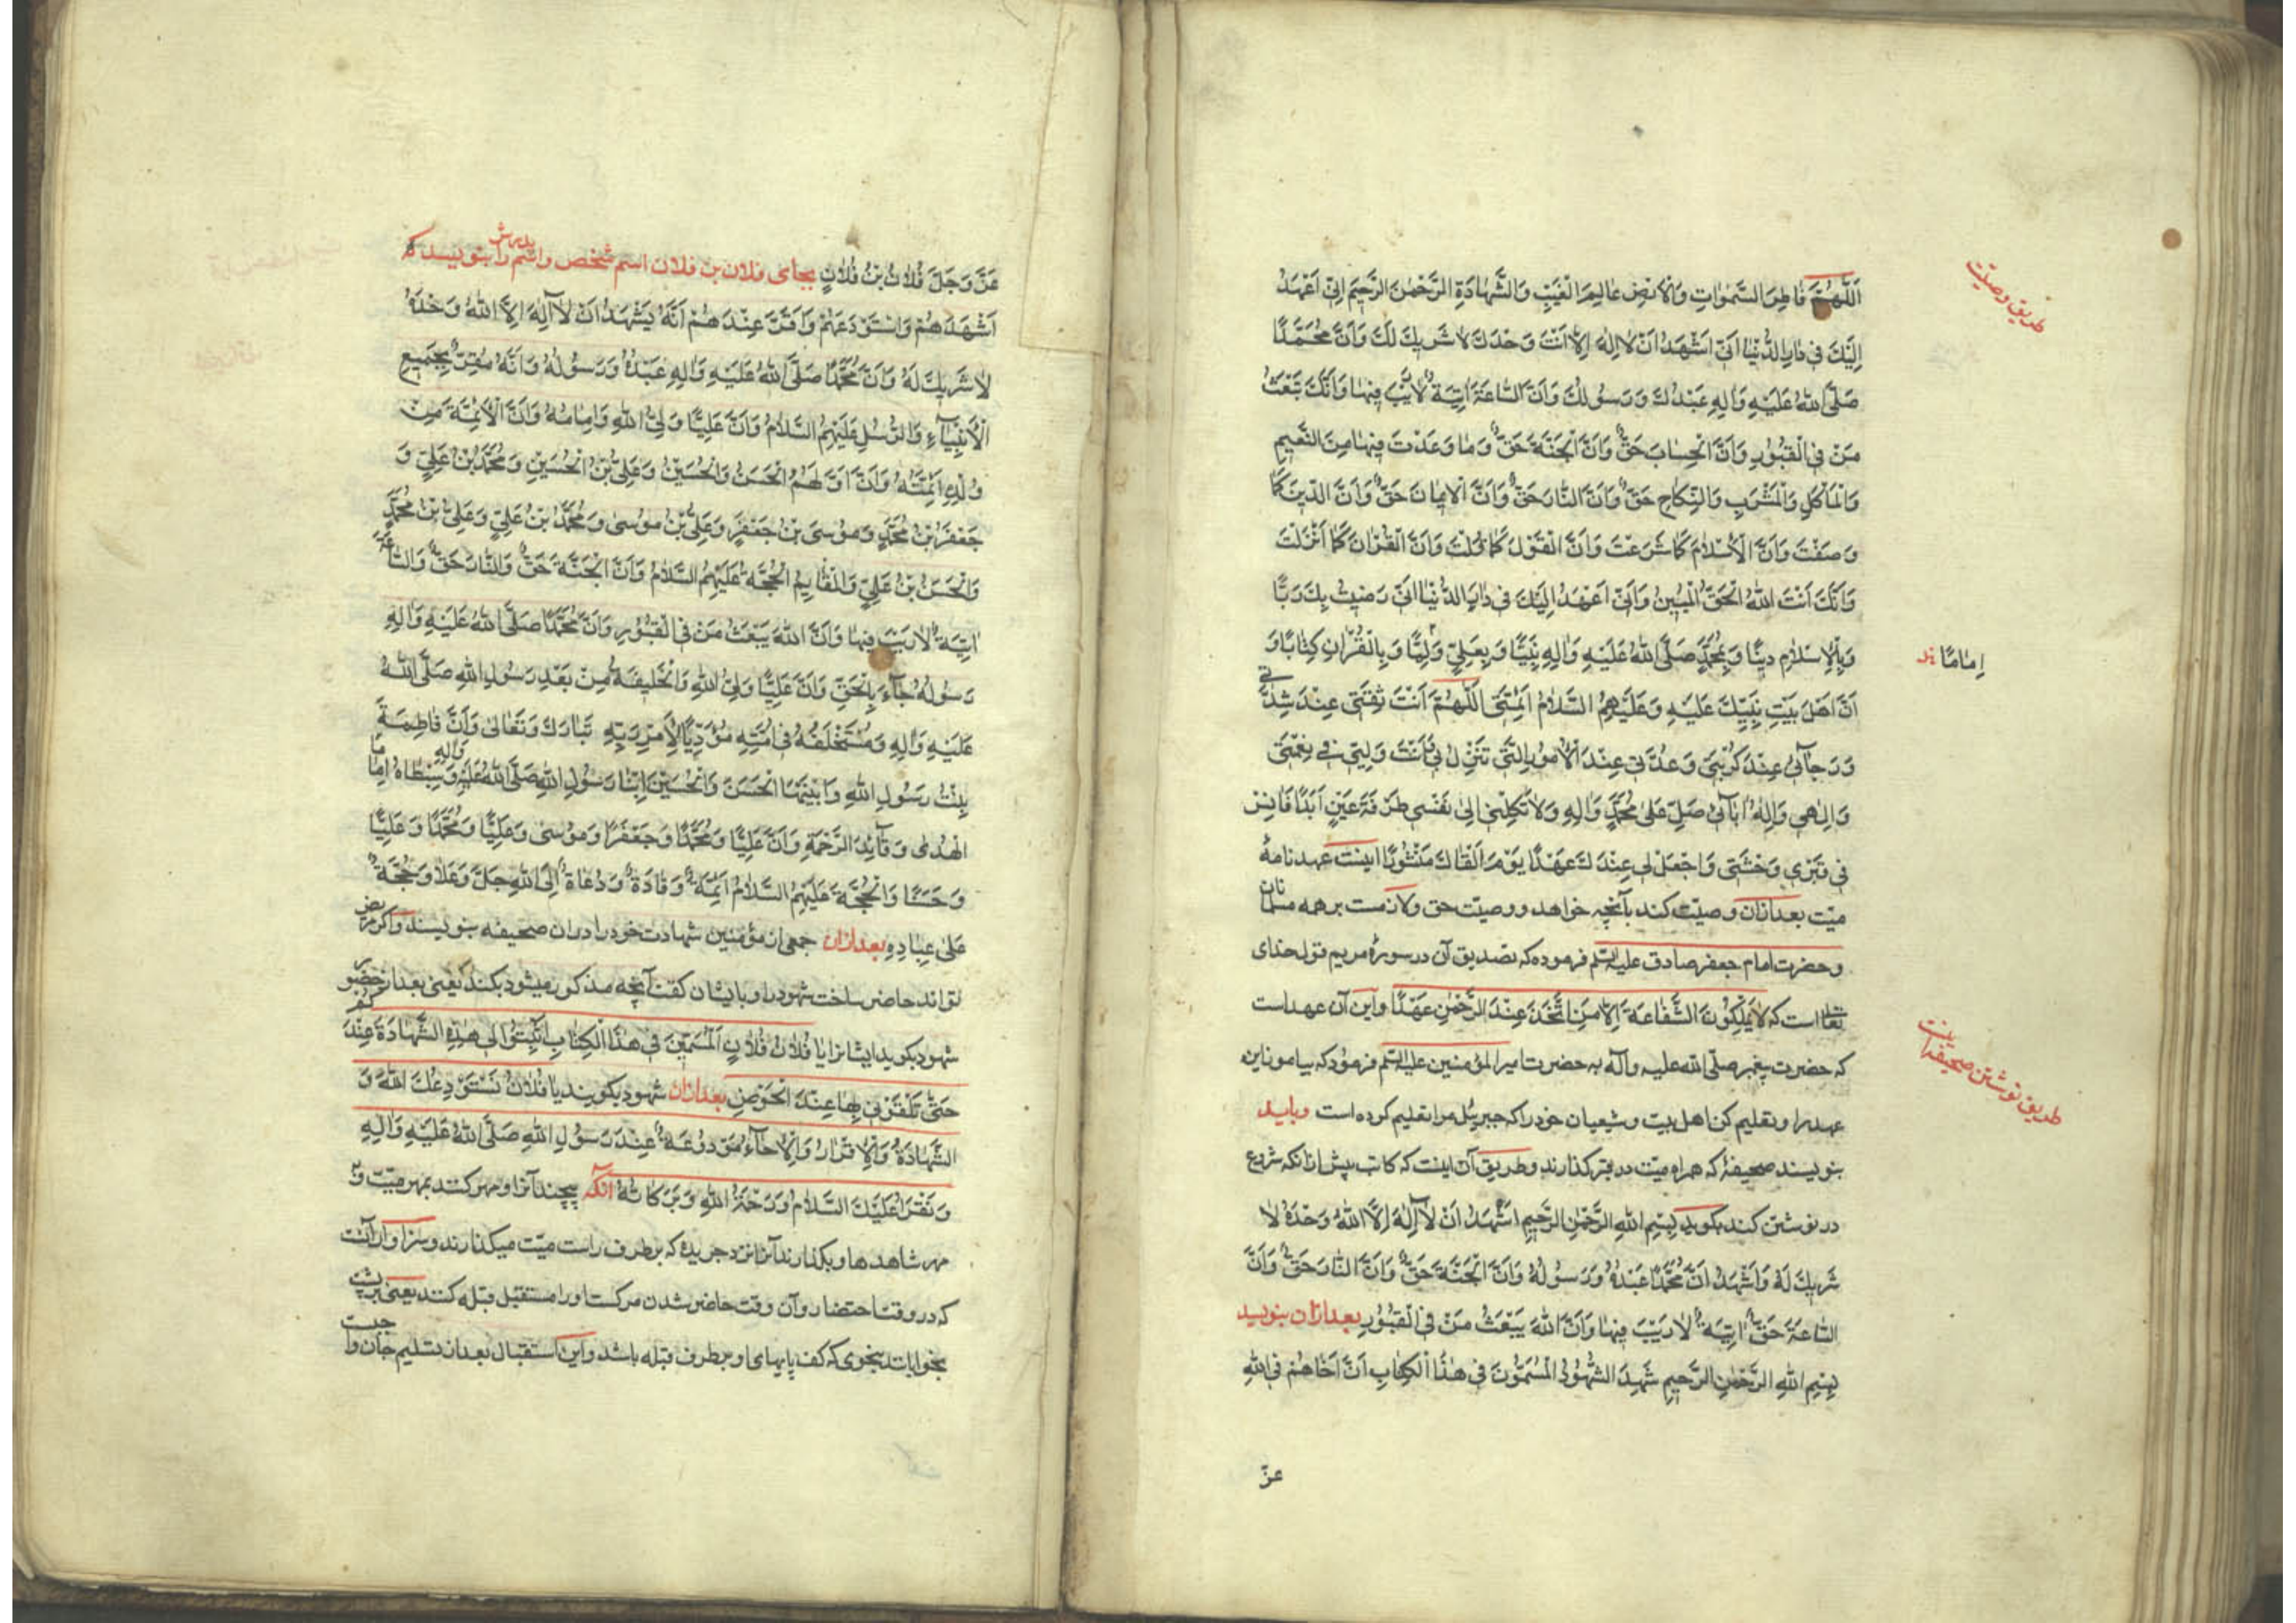 طریق وصیّت
اَللّهُمَّ فَاطِرَ السَّمٰوَاتِ وَالْاَرْضِ عَالِمَ الْغَیْبِ وَالشَّهَادَةِ الرَّحْمٰنَ الرَّحِیمَ اِنّی اَعْهَدُ
اِلَیْكَ فی دَارِ الدُّنْیَا اَنّی اَشْهَدُ اَنْ لَا اِلٰهَ اِلَّا اَنْتَ وَحْدَكَ لَا شَرِیكَ لَكَ وَاَنَّ مُحَمَّدًا
صَلَّی اللّهُ عَلَیْهِ وَاٰلِهِ عَبْدُكَ وَرَسُولُكَ وَاَنَّ السَّاعَةَ اٰتِیَةٌ لَا رَیْبَ فِیهَا وَاَنَّكَ تَبْعَثُ
مَنْ فِی الْقُبُورِ وَاَنَّ الْحِسَابَ حَقٌّ وَاَنَّ الْجَنَّةَ حَقٌّ وَمَا وَعَدْتَ فِیهَا مِنَ النَّعِیمِ
وَالْمَاْكَلِ وَالْمَشْرَبِ وَالنِّكَاحِ حَقٌّ وَاَنَّ النَّارَ حَقٌّ وَاَنَّ الْاِیمَانَ حَقٌّ وَاَنَّ الدّینَ كَمَا
وَصَفْتَ وَاَنَّ الْاِسْلَامَ كَمَا شَرَعْتَ وَاَنَّ الْقَوْلَ كَمَا قُلْتَ وَاَنَّ الْقُرْاٰنَ كَمَا اَنْزَلْتَ
وَاَنَّكَ اَنْتَ اللّهُ الْحَقُّ الْمُبِینُ وَاَنّی اَعْهَدُ اِلَیْكَ فی دَارِ الدُّنْیَا اَنّی رَضِیتُ بِكَ رَبًّا
وَبِالْاِسْلَامِ دِینًا وَبِمُحَمَّدٍ صَلَّی اللّهُ عَلَیْهِ وَاٰلِهِ نَبِیًّا وَبِعَلِیٍّ وَلِیًّا وَبِالْقُرْاٰنِ كِتَابًا وَ
اِمَامًا
اَنَّ اَهْلَ بَیْتِ نَبِیِّكَ عَلَیْهِ وَعَلَیْهِمُ السَّلَامُ اَئِمَّتی اَللّهُمَّ اَنْتَ ثِقَتی عِنْدَ شِدَّتی
وَرَجَآئی عِنْدَ كُرْبَتی وَعُدَّتی عِنْدَ الْاُمُورِ الَّتی تَنْزِلُ بی فَاَنْتَ وَلِیّی فی نِعْمَتی
وَاِلٰهی وَاِلٰهُ اٰبَآئی صَلِّ عَلٰی مُحَمَّدٍ وَاٰلِهِ وَلَا تَكِلْنی اِلٰی نَفْسی طَرْفَةَ عَیْنٍ اَبَدًا فَاٰنِسْ
فی قَبْری وَحْشَتی وَاجْعَلْ لی عِنْدَكَ عَهْدًا یَوْمَ اَلْقَاكَ مَنْشُورًا اینست عهدنامهٔ
میّت بعد ازان وصیّت كند بآنچه خواهد و وصیّت حق ولازمست برهمه مسلمانان
وحضرت امام جعفر صادق علیه السّلم فرموده كه تصدیق آن در سورهٔ مریم قول خدای
تعالی است كه لَا یَمْلِكُونَ الشَّفَاعَةَ اِلَّا مَنِ اتَّخَذَ عِنْدَ الرَّحْمٰنِ عَهْدًا واین آن عهد است
طریق نوشتن صحیفه اینست
كه حضرت پیغمبر صلّی الله علیه وآله به حضرت امیر المؤمنین علیه السّلم فرمود كه بیاموز این
عهد را و تعلیم كن اهل بیت و شیعیان خود را كه جبرئیل مرا تعلیم كرده است وباید
بنویسند صحیفهٔ كه همراه میّت در قبر گذارند وطریق آن اینست كه كاتب پیش ازانكه شروع
در نوشتن كند بگوید بِسْمِ اللّهِ الرَّحْمٰنِ الرَّحِیمِ اَشْهَدُ اَنْ لَا اِلٰهَ اِلَّا اللّهُ وَحْدَهُ لَا
شَرِیكَ لَهُ وَاَشْهَدُ اَنَّ مُحَمَّدًا عَبْدُهُ وَرَسُولُهُ وَاَنَّ الْجَنَّةَ حَقٌّ وَاَنَّ النَّارَ حَقٌّ وَاَنَّ
السَّاعَةَ حَقٌّ اٰتِیَةٌ لَا رَیْبَ فِیهَا وَاَنَّ اللّهَ یَبْعَثُ مَنْ فِی الْقُبُورِ بعد ازان بنویسد
بِسْمِ اللّهِ الرَّحْمٰنِ الرَّحِیمِ شَهِدَ الشُّهُودُ الْمُسَمَّوْنَ فی هٰذَا الْكِتَابِ اَنَّ اَخَاهُمْ فِی اللّهِ
عزّ
عَزَّ وَجَلَّ فُلَانُ بْنُ فُلَانٍ بجای فلان بن فلان اسم شخص واسم پدرش را بنویسد كه
اَشْهَدَهُمْ وَاسْتَوْدَعَهُمْ وَاَقَرَّ عِنْدَهُمْ اَنَّهُ یَشْهَدُ اَنْ لَا اِلٰهَ اِلَّا اللّهُ وَحْدَهُ
لَا شَرِیكَ لَهُ وَاَنَّ مُحَمَّدًا صَلَّی اللّهُ عَلَیْهِ وَاٰلِهِ عَبْدُهُ وَرَسُولُهُ وَاَنَّهُ مُقِرٌّ بِجَمِیعِ
الْاَنْبِیَآءِ وَالرُّسُلِ عَلَیْهِمُ السَّلَامُ وَاَنَّ عَلِیًّا وَلِیُّ اللّهِ وَاِمَامُهُ وَاَنَّ الْاَئِمَّةَ مِنْ
وُلْدِهِ اَئِمَّتُهُ وَاَنَّ اَوَّلَهُمُ الْحَسَنُ وَالْحُسَیْنُ وَعَلِیُّ بْنُ الْحُسَیْنِ وَمُحَمَّدُ بْنُ عَلِیٍّ وَ
جَعْفَرُ بْنُ مُحَمَّدٍ وَمُوسَی بْنُ جَعْفَرٍ وَعَلِیُّ بْنُ مُوسٰی وَمُحَمَّدُ بْنُ عَلِیٍّ وَعَلِیُّ بْنُ مُحَمَّدٍ
وَالْحَسَنُ بْنُ عَلِیٍّ وَالْقَایِمُ الْحُجَّةُ عَلَیْهِمُ السَّلَامُ وَاَنَّ الْجَنَّةَ حَقٌّ وَالنَّارَ حَقٌّ وَالسَّاعَةَ
اٰتِیَةٌ لَا رَیْبَ فِیهَا وَاَنَّ اللّهَ یَبْعَثُ مَنْ فِی الْقُبُورِ وَاَنَّ مُحَمَّدًا صَلَّی اللّهُ عَلَیْهِ وَاٰلِهِ
رَسُولُهُ جَآءَ بِالْحَقِّ وَاَنَّ عَلِیًّا وَلِیُّ اللّهِ وَالْخَلِیفَةُ مِنْ بَعْدِ رَسُولِ اللّهِ صَلَّی اللّهُ
عَلَیْهِ وَاٰلِهِ وَمُسْتَخْلَفُهُ فی اُمَّتِهِ مُؤَدِّیًا لِاَمْرِ رَبِّهِ تَبَارَكَ وَتَعَالٰی وَاَنَّ فَاطِمَةَ
بِنْتُ رَسُولِ اللّهِ وَابْنَیْهَا الْحَسَنَ وَالْحُسَیْنَ اِبْنَا رَسُولِ اللّهِ صَلَّی اللّهُ عَلَیْهِ وَاٰلِهِ وَسِبْطَاهُ اِمَامَا
الْهُدٰی وَقَآئِدَا الرَّحْمَةِ وَاَنَّ عَلِیًّا وَمُحَمَّدًا وَجَعْفَرًا وَمُوسٰی وَعَلِیًّا وَمُحَمَّدًا وَعَلِیًّا
وَحَسَنًا وَالْحُجَّةَ عَلَیْهِمُ السَّلَامُ اَئِمَّةٌ وَقَادَةٌ وَدُعَاةٌ اِلَی اللّهِ جَلَّ وَعَلَا وَحُجَّةٌ
عَلٰی عِبَادِهِ بعد ازان جمعی از مؤمنین شهادت خود را دران صحیفه بنویسند واگر مریض
تواند حاضر ساخت شهود را و بایشان گفت آنچه مذكور میشود بكند یعنی بعد از حضور
شهود بگوید ایشانرا یَا فُلَانُ فُلَانٍ الْمُسَمَّیْنَ فی هٰذَا الْكِتَابِ اَثْبِتُوا لی هٰذِهِ الشَّهَادَةَ عِنْدَكُمْ
حَتّٰی تَلْقَوْنی بِهَا عِنْدَ الْحَوْضِ بعد ازان شهود بگویند یَا فُلَانُ نَسْتَوْدِعُكَ اللّهَ وَ
الشَّهَادَةُ وَالْاِقْرَارُ وَالْاِخَآءُ مَوْدُوعَةٌ عِنْدَ رَسُولِ اللّهِ صَلَّی اللّهُ عَلَیْهِ وَاٰلِهِ
وَنَقْرَاُ عَلَیْكَ السَّلَامُ وَرَحْمَةُ اللّهِ وَبَرَكَاتُهُ آنگه پیچند آنرا و مهر كنند بمهر میّت و
مهر شاهدها و بگذارند آنرا نزد جریدهٔ كه بر طرف راست میّت میگذارند وسزاوار آنست
كه در وقت احتضار و آن وقت حاضر شدن مرگست او را مستقبل قبله كنند یعنی بر پشت
بخوابانند بنحوی كه كف پایهای او بطرف قبله باشد واین استقبال بعد از تسلیم جان واجبست